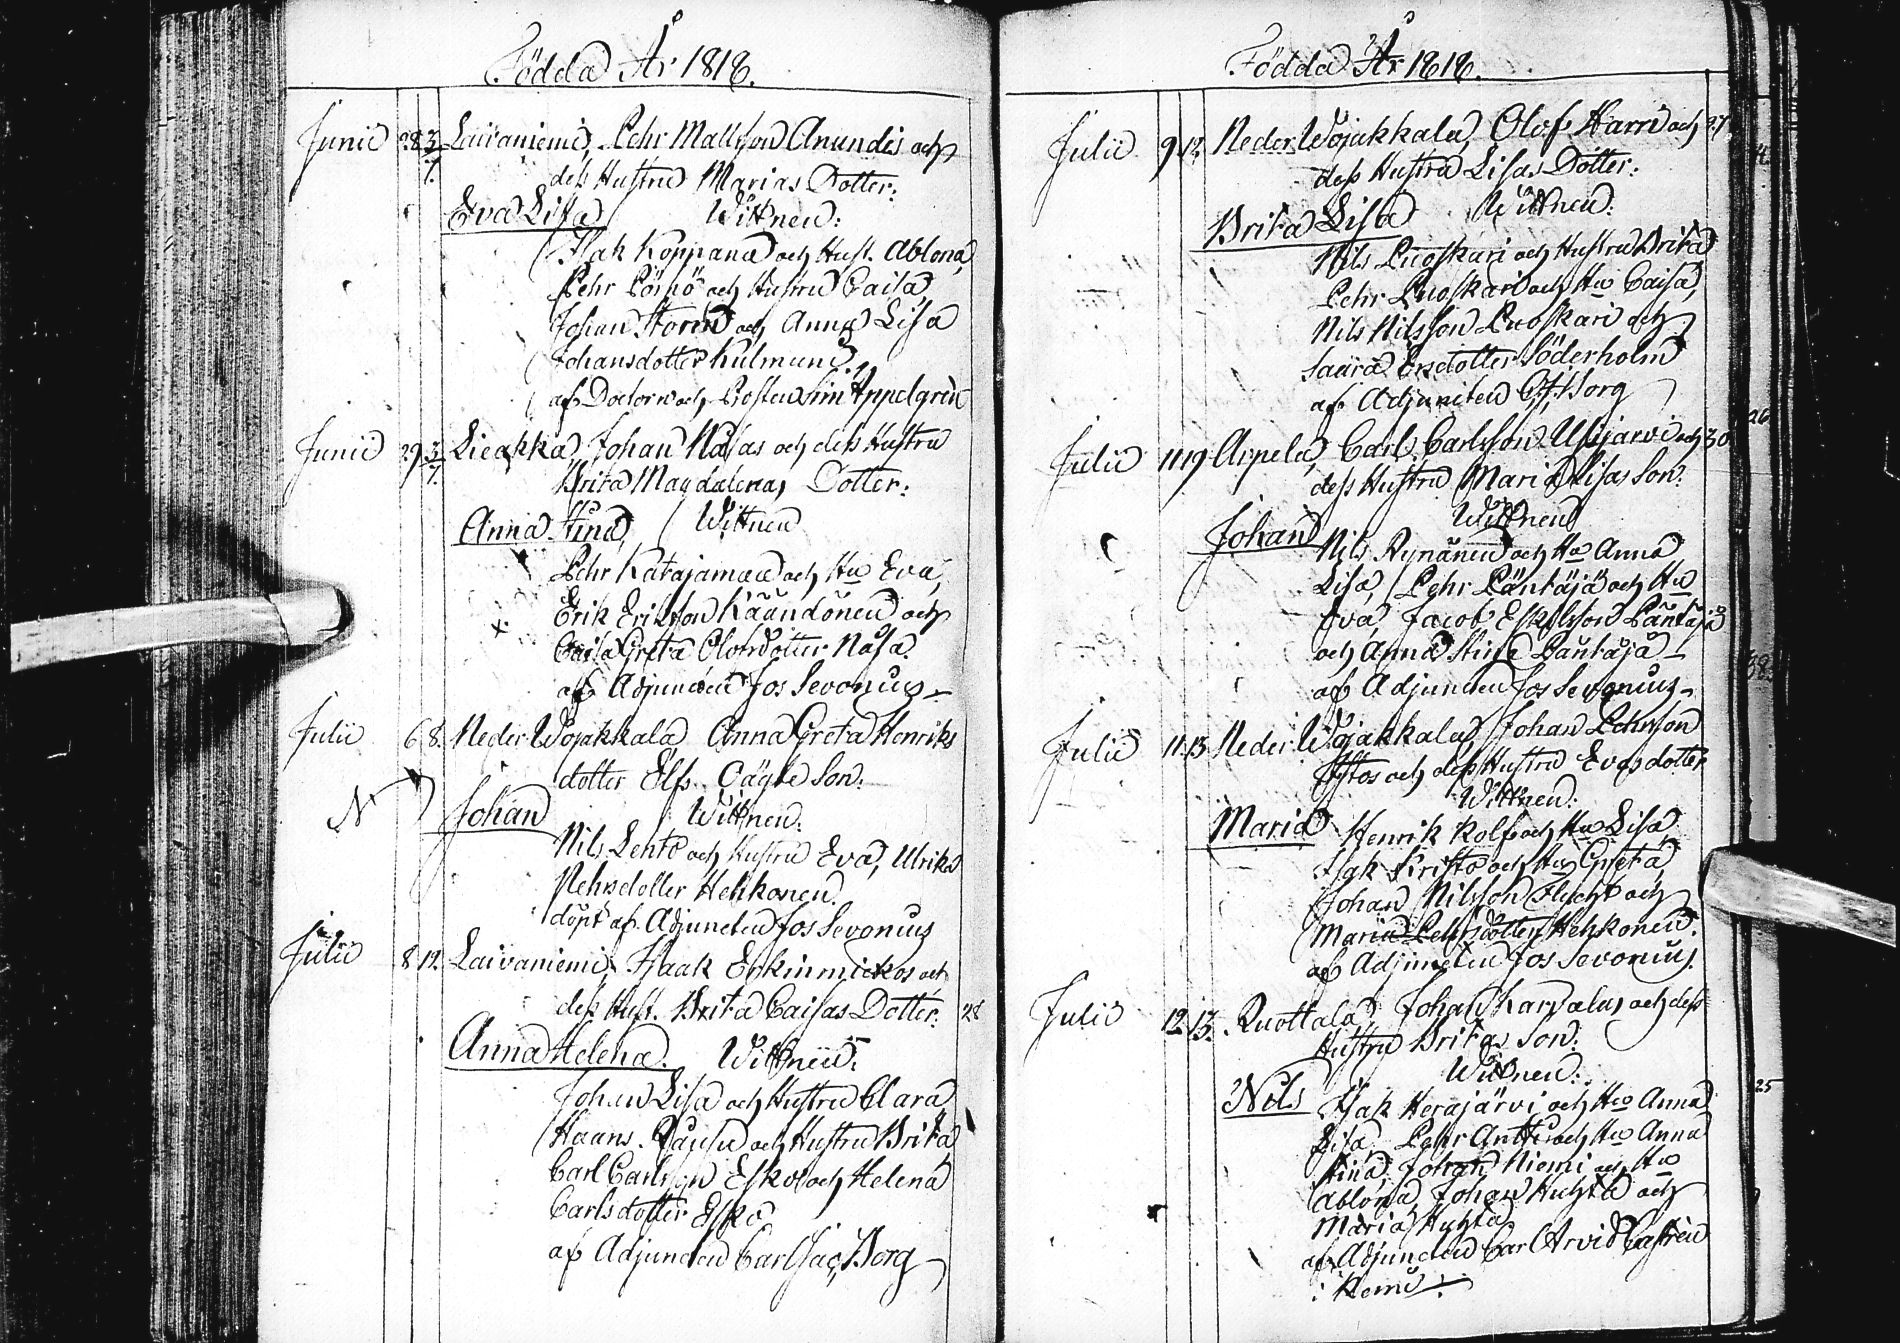 Födda År 1818.
Junii 28 3/7. Laivaniemi, Pehr Mattsson Anundis och
dess Hustru Marias Dotter:
Eva Lisa Wittnen:
Isak Koppana och Hust. Ablona,
Pehr Pösyö och Hustru Caisa
Johan Storm och Anna Lisa
Johansdotter Kulmuni,
af Doctorn och Prosten Sim Appelgren
Junii 29 3/7. Lieakka, Johan Nasas och dess Hustru
Brita Magdalenas Dotter:
Anna Stina, Wittnen
Pehr Katajamaa och Hu Eva,
Erik Eriksson Käändönen och
Caisa Greta Olofsdotter Nasa.
af Adjuncten Jos Sevonius
Julii 6 8. Neder Wojakkala Anna Greta Henriks
dotter Elfs Oägte Son.
N Johan Wittnen:
Nils Lento och Hustru Eva, Ulrika
Pehrsdotter Hehkonen.
döpt af Adjuncten Jos Sevonius
Julii 8 12. Laivaniemi, Isaak Erkinmickos och
dess Hust. Brita Caisas Dotter. 28
Anna Helena. Wittnen:
Johan Lisa och Hustru Clara
Haans och Hustru Brita
Carl Carlsson Esko och Helena
Carlsdotter Esko
af Adjuncten Carl Jac. Borg
Födda År 1818.
Julii 9 12. Neder Wojakkala, Olof Harri och 27
dess Hustru Lisas Dotter:
Brita Lisa Wittnen:
Nils Luoskari och Hustru Brita
Pehr Luoskari och Hu Caisa,
Nils Nilsson Luoskari och
Saara Ersdotter Söderholm
af Adjuncten C. J. Borg
Julii 11 19 Arpela, Carl Carlsson Ylijarvi och 30
dess Hustru Maria Lisas Son:
Wittnen
Johan Nils Rynänen och Hu Anna
Lisa, Pehr Läntäjä och Hu
Eva, Jacob Eskelsson Läntäjä
och Anna Stina Läntäjä
af Adjuncten Jos Sevonius
Julii 11. 13 Neder Wojakkala, Johan Pehrsson
och dess Hustru Evas dotter
Wittnen:
Maria Henrik Rolf och Hu Lisa,
Isak Kristo och Hu Greta,
Johan Nilsson Flycht och
Maria Pehrsdotter Hehkonen.
af Adjuncten Jos Sevonius.
Julii 12 13. Ruottala, Johan Karjalus och dess
Hustru Britas Son:
Wittnen:
Nils Isak Herajärvi och Hu Anna
Lisa, Pehr Antti och Hu Anna
Stina, Johan Niemi och Hu
Ablona, Johan Huhta och
Maria Huhta
af Adjuncten Carl Arvid Castrén
i Kemi
26
25